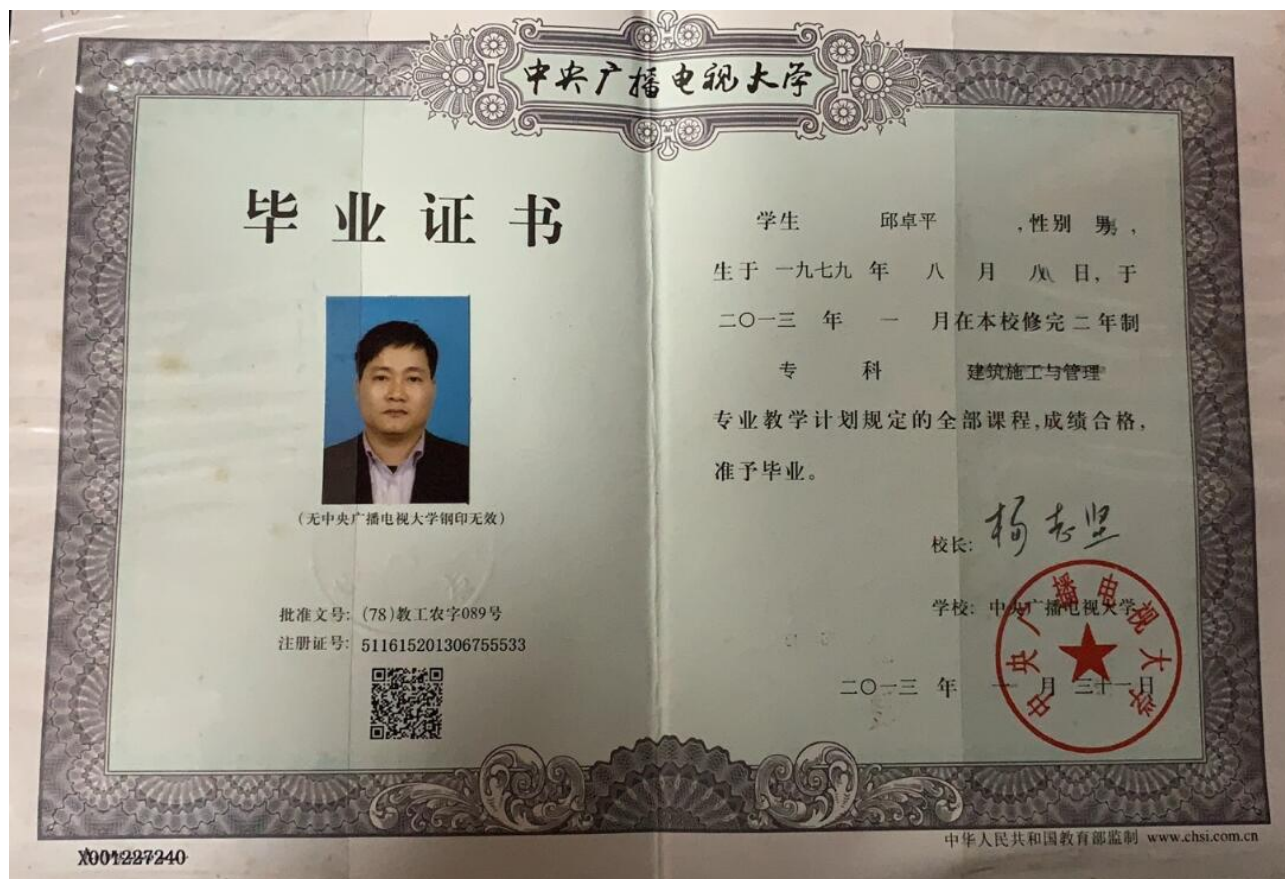 中央广播电视大学
毕业证书
(无中央广播电视大学钢印无效)
批准文号: (78)教工农字089号
注册证号: 511615201306755533
X001227240
学生 邱卓平 ,性别 男,
生于 一九七九 年 八 月 八 日, 于
二〇一三 年 一 月在本校修完 二 年制
专 科 建筑施工与管理
专业教学计划规定的全部课程,成绩合格,
准予毕业。
校长: 杨志坚
学校: 中央广播电视大学
二〇一三 年 一 月 三十一日
中央广播电视大学
中华人民共和国教育部监制 www.chsi.com.cn